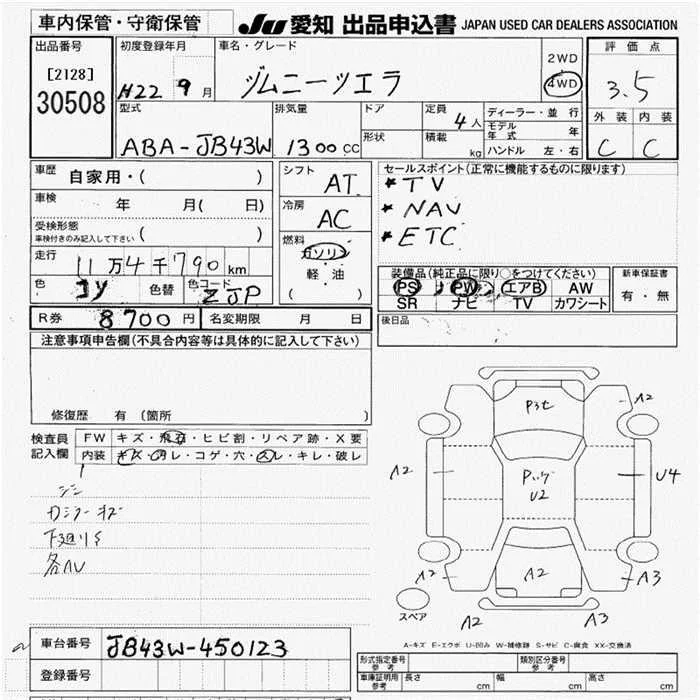 車内保管・守衛保管 JU 愛知 出品申込書 JAPAN USED CAR DEALERS ASSOCIATION
出品番号 初度登録年月 車名・グレード 評価点
[2128] 30508 H22 9月 ジムニーシエラ 2WD 4WD 3.5
型式 排気量 ドア 定員 4人 ディーラー・並行 外装 内装
形状 積載 kg モデル年式 年
ABA-JB43W 1300cc ハンドル 左・右 C C
車歴 自家用・( ) シフト AT セールスポイント(正常に機能するものに限ります)
★TV
車検 年 月( 日) 冷房 AC ★NAV
受検形態 車検付きのみ記入して下さい ( ) ★ETC
走行 11万4千790km 燃料 ガソリン 軽・油 ( )
装備品(純正品に限り○をつけてください) 新車保証書
色 コン 色替 色コード ZJP PS PW エアB AW 有・無
SR ナビ TV カワシート
R券 8700円 名変期限 月 日 後日品
注意事項申告欄(不具合内容等は具体的に記入して下さい)
修復歴 有 (箇所 )
検査員記入欄 FW キズ・飛石・ヒビ割・リペア跡・X要
内装 キズ・汚レ・コゲ・穴・スレ・キレ・破レ
下廻りS
P3セ A2
A2 U2 U4
A2 A2 A3
スペア A2 A3
A-キズ E-エクボ U-凹み W-補修跡 S-サビ C-腐食 XX-交換済
車台番号 JB43W-450123
登録番号
形式指定番号 参考 類別区分番号 参考
車庫証明用 参考 長さ cm 幅 cm 高さ cm